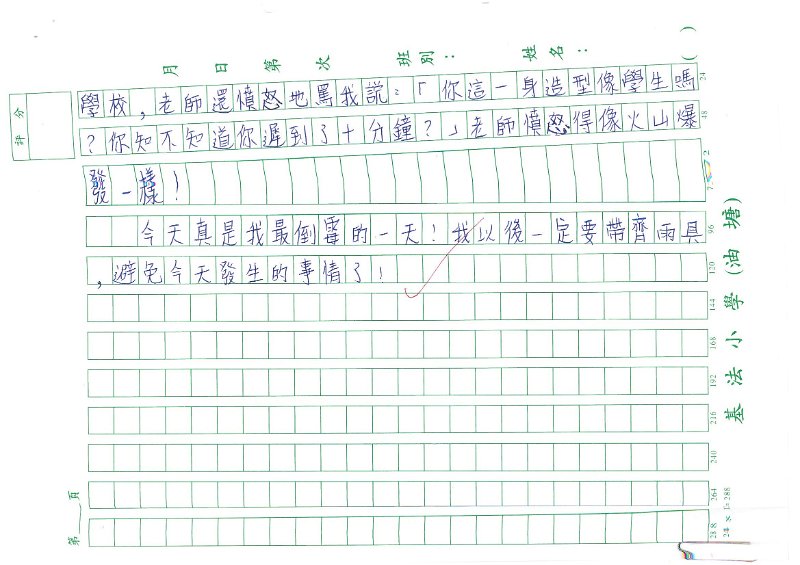 月 日 第 次 班別： 姓名： ( )
評分
學校，老師還憤怒地罵我說：「你這一身造型像學生嗎 24
？你知不知道你遲到了十分鐘？」老師憤怒得像火山爆 48
發一樣！ 72
今天真是我最倒霉的一天！我以後一定要帶齊雨具 96
，避免今天發生的事情了！ 120
144
168
192
216
240
264
288
第 頁
基法小學(油塘)
24 × 12=288